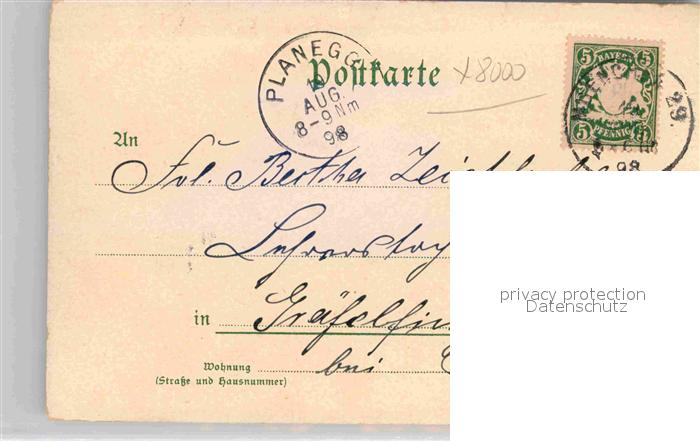 PLANEGG
AUG.
8-9 Nm
98
Postkarte
x8000
5 BAYERN 5
5 PFENNIG 5
29.
98
An
Frl. Bertha
in Gräfelfin
bei
Wohnung
(Straße und Hausnummer)
privacy protection
Datenschutz